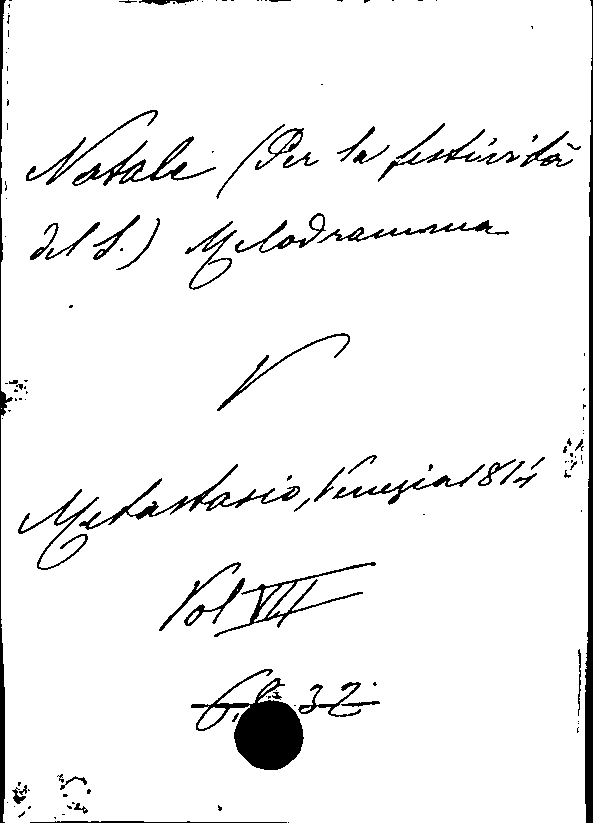 Natale (Per la festività
del S.) Melodramma
V
Metastasio, Venezia 1814
Vol VII
32.